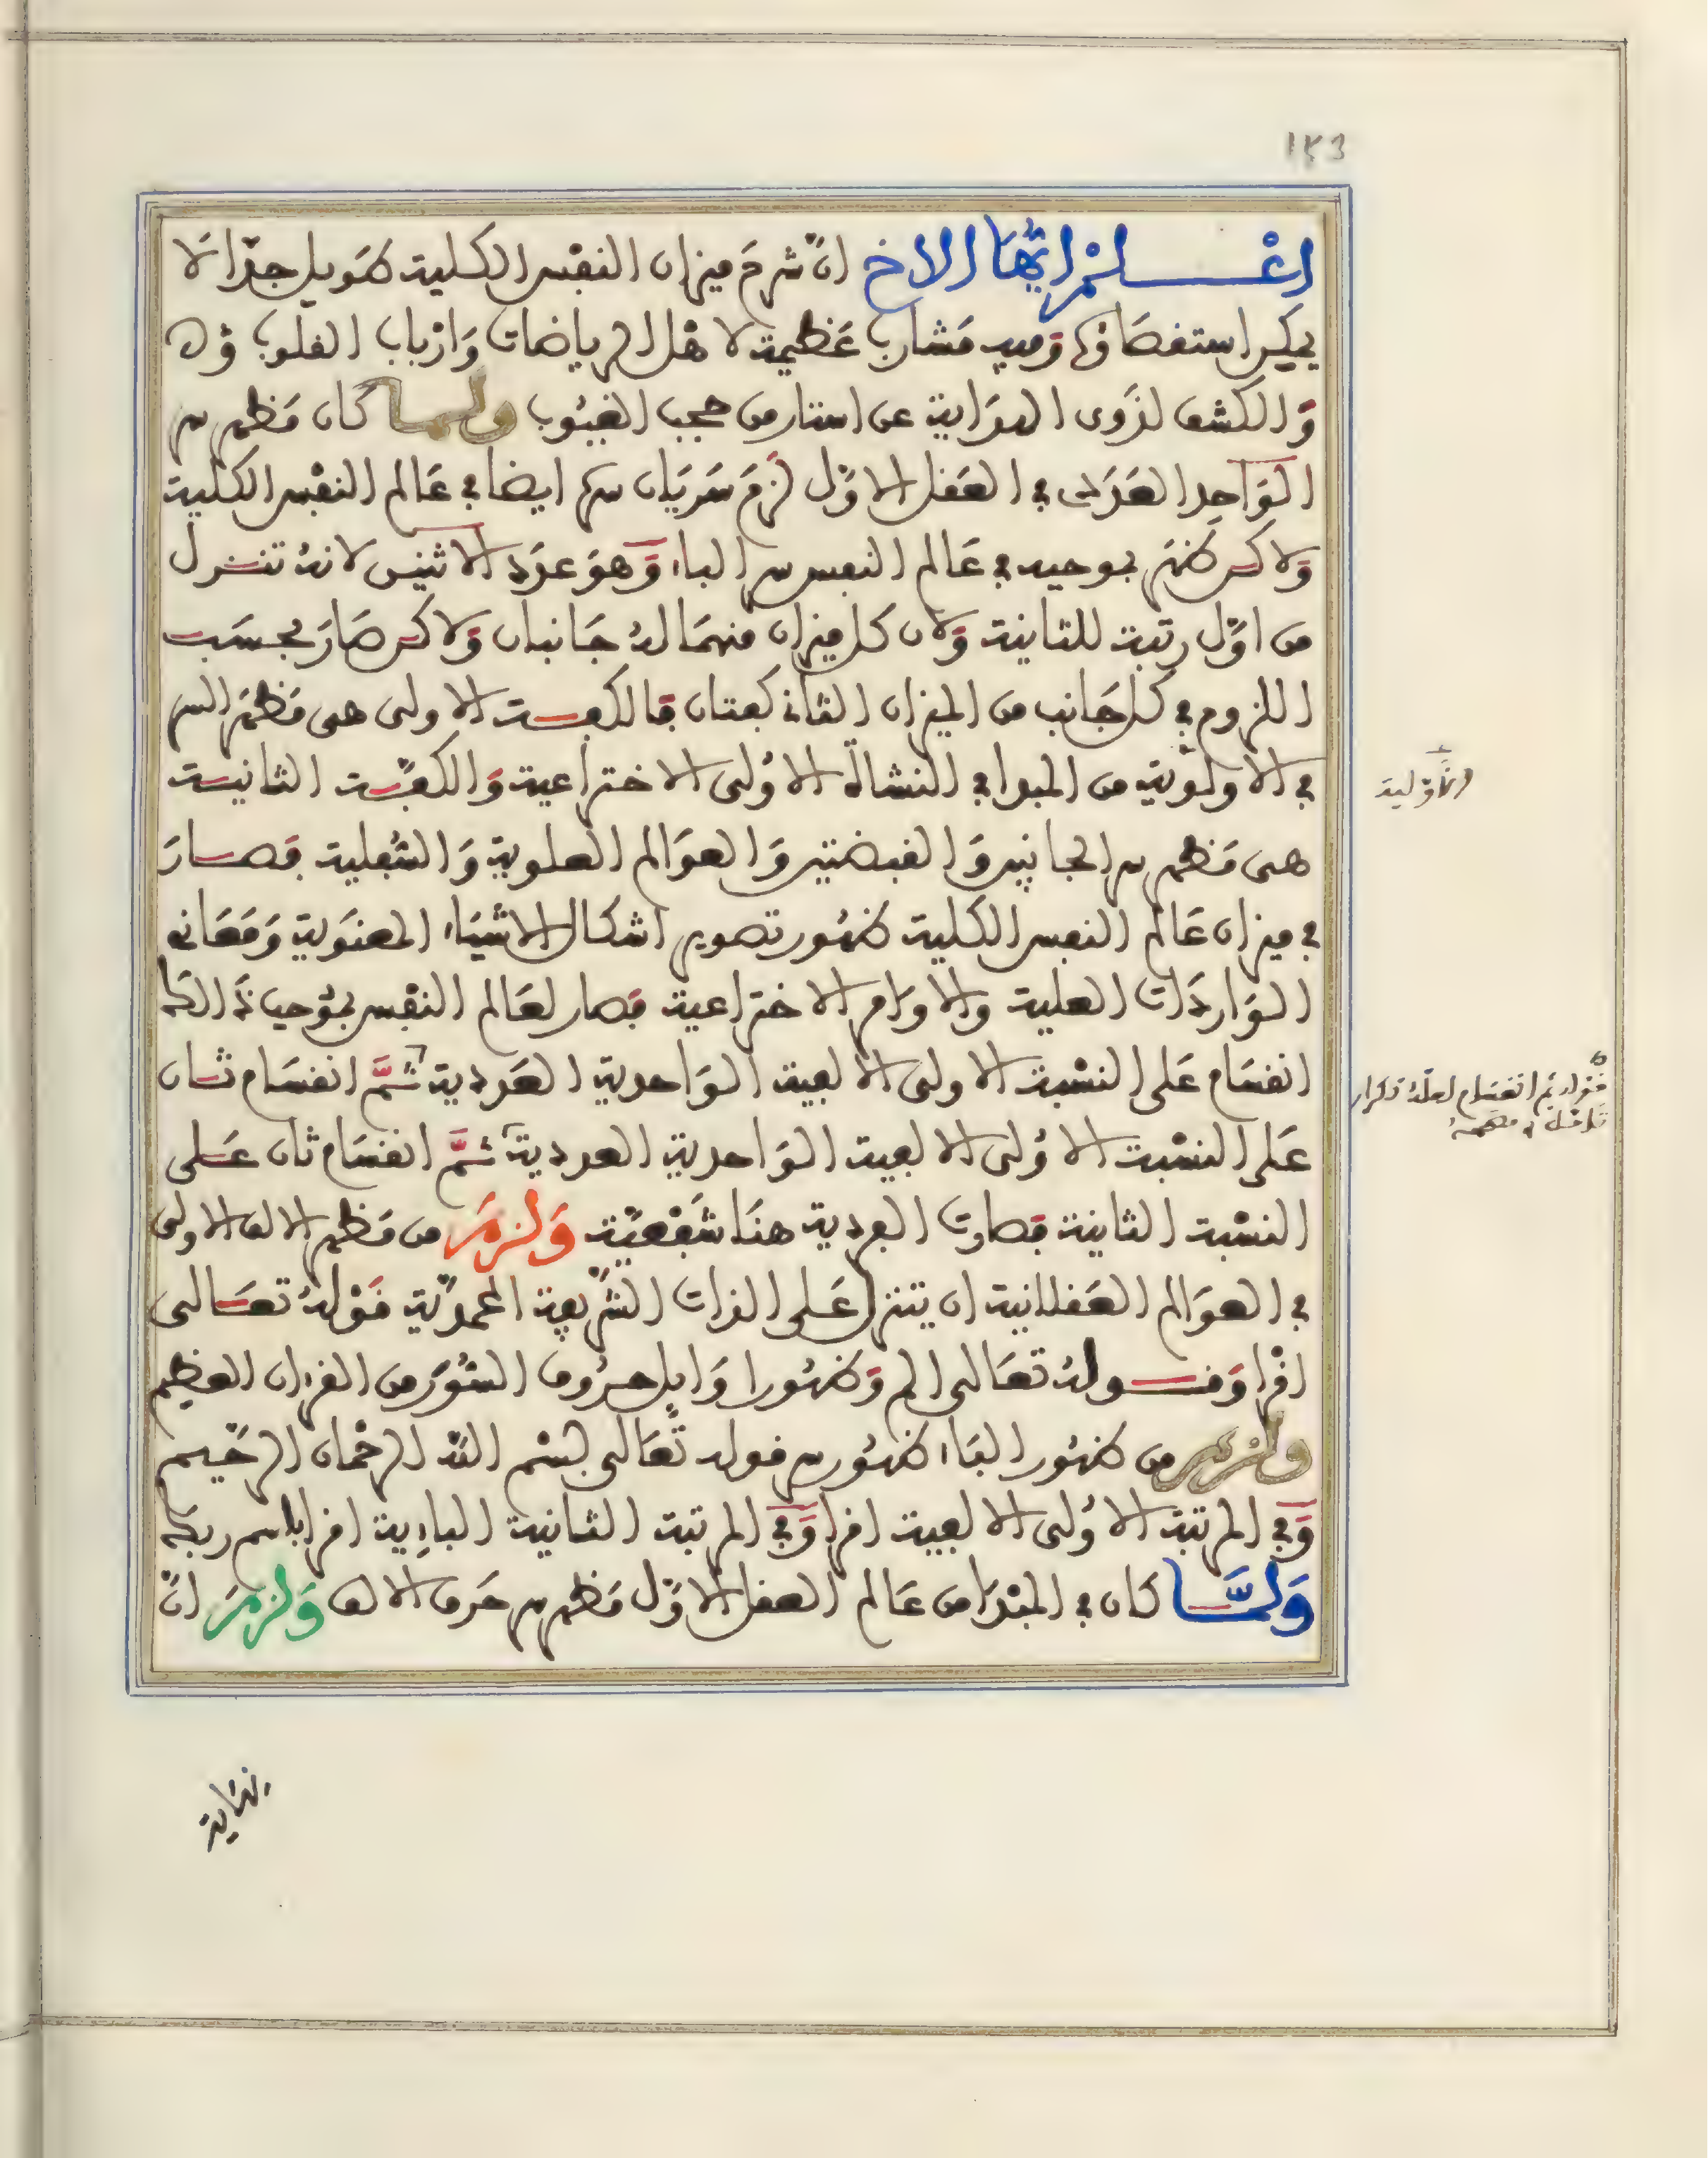 ١٢٣
اعْلمْ ايُّهَا الاخ انّ شرحَ ميزان النفْس الكلية طَويل جدّا لَا
يمكن استقصَاؤه وَفيه مَشارب عَظيمة لاهْل الرياضات وَارْباب القلوب
وَالكشف لذوى الدرَاية عن استار من حجب الغيُوب ولمـا كان مَظهر سر
الوَاحد العَددى في العَقل الاوّل لزمَ سَرَيَان سره ايضا في عَالم النفْس الكلية
وَلاكن ظهَر بوحيه في عَالم النفس سر الباء وَهوَ عدَد الاثنين لانهُ تنـزل
من اوّل رتبة للثانية وَلان كل ميزان منهمَا لهُ جَانبان وَلاكن صَارَ بحسَب
اللزوم في كل جَانب من الميزان الثانى كفتان فالكفـة الاولى هى مَظهَر السر
في الاولوية من المبدا في النشأة الاولى الاختراعية وَالكفـة الثانيـة
هى مَظهر سر الجانبين وَالقبضتين وَالعوَالم العلوية وَالسُفلية فصـارَ
في ميزان عَالم النفس الكلية ظهُور تصوير اشكال الاشيَاء المعنَوية وَمَعَانى
الوَاردَات العلية والاوَامر الاختراعية فصار لعَالم النفْس
انقسَام عَلى النسْبة الاولى الالفية الوَاحدية العَددية ثمَّ انقسَام ثـان
عَلى النسْبة الاوُلى الالفية الوَاحدية العددية ثمَّ انقسَام ثان عَـلى
النسْبة الثانية فصارت الفردية هنَا شَفْعيّة وَلزمَ من مَظهر الالف الاولى
في العوَالم العَقلانية ان يتنزل عَلى الذات الشّريفة المحمدّية قوْلهُ تعَـالى
اقْرا وَقـولهُ تعَالى الم وَظهُورا وَايل حرُوف السُّوَر من القرءان العظيم
ولزم من ظهُور البَاء ظهُور سر قوله تَعَالى بسْم اللّه الرحْمان الرحّيم
وَفي المرتبة الاوُلى الالفية اقرا وَفي المرتبة الثانية البايية اقرا باسم ربك
وَلمَّـا كان في المبْدَا من عَالم العقل الاوّل مَظهر سر حَرف الالف وَلزمَ انّ
الأوّلية
قوله ثم انقسام لعلهُ تكرار
تامّله
نهَاية